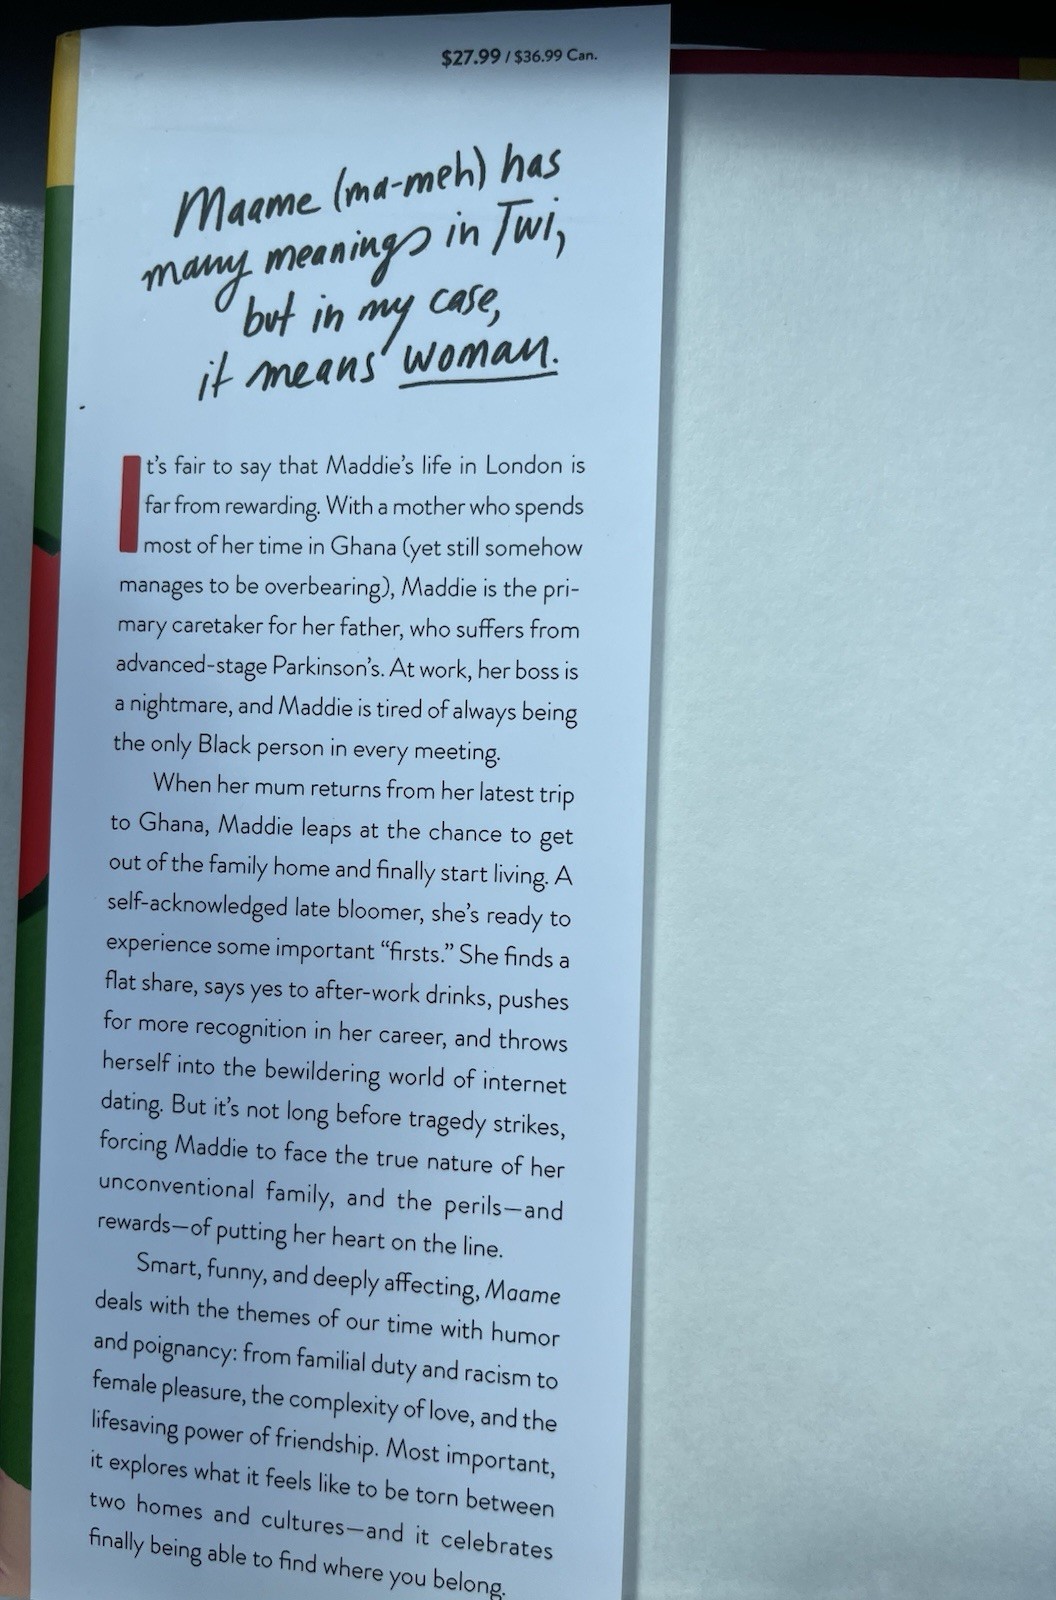 $27.99 / $36.99 Can.
Maame (ma-meh) has
many meanings in Twi,
but in my case,
it means woman.
It's fair to say that Maddie's life in London is
far from rewarding. With a mother who spends
most of her time in Ghana (yet still somehow
manages to be overbearing), Maddie is the pri-
mary caretaker for her father, who suffers from
advanced-stage Parkinson's. At work, her boss is
a nightmare, and Maddie is tired of always being
the only Black person in every meeting.
When her mum returns from her latest trip
to Ghana, Maddie leaps at the chance to get
out of the family home and finally start living. A
self-acknowledged late bloomer, she's ready to
experience some important “firsts.” She finds a
flat share, says yes to after-work drinks, pushes
for more recognition in her career, and throws
herself into the bewildering world of internet
dating. But it's not long before tragedy strikes,
forcing Maddie to face the true nature of her
unconventional family, and the perils—and
rewards—of putting her heart on the line.
Smart, funny, and deeply affecting, Maame
deals with the themes of our time with humor
and poignancy: from familial duty and racism to
female pleasure, the complexity of love, and the
lifesaving power of friendship. Most important,
it explores what it feels like to be torn between
two homes and cultures—and it celebrates
finally being able to find where you belong.